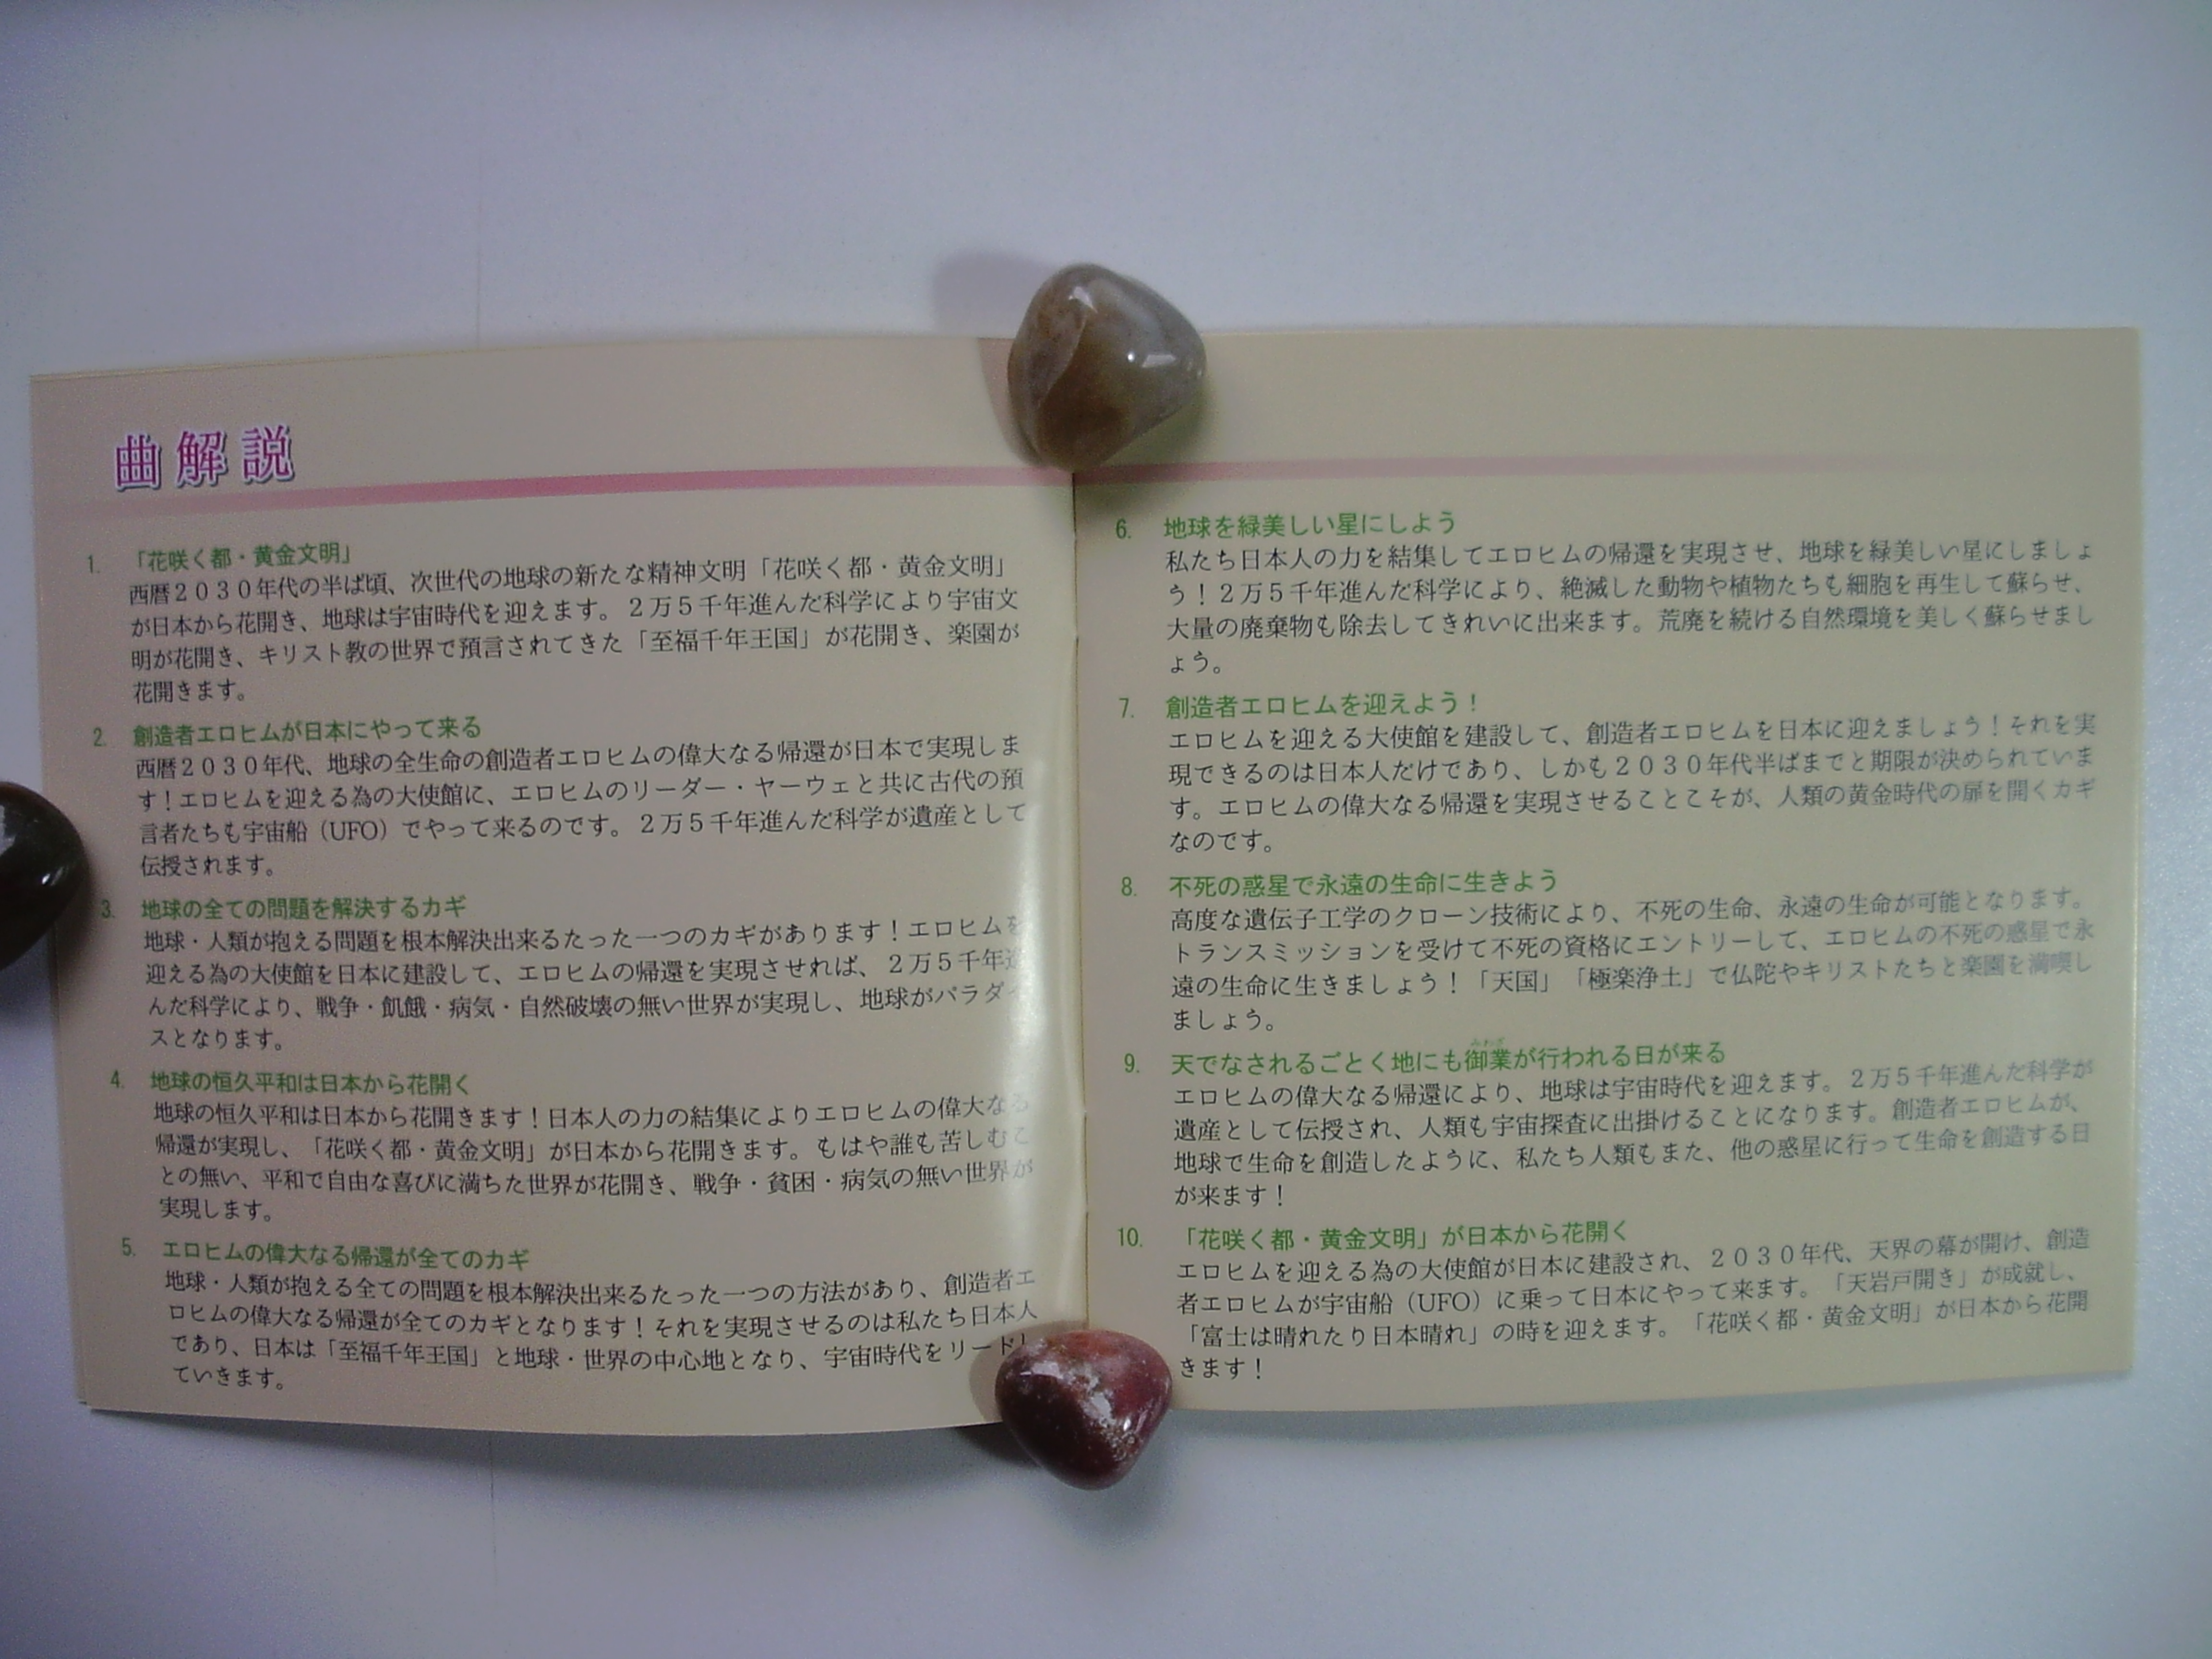 曲解説
1. 「花咲く都・黄金文明」
西暦２０３０年代の半ば頃、次世代の地球の新たな精神文明「花咲く都・黄金文明」
が日本から花開き、地球は宇宙時代を迎えます。２万５千年進んだ科学により宇宙文
明が花開き、キリスト教の世界で預言されてきた「至福千年王国」が花開き、楽園が
花開きます。
2. 創造者エロヒムが日本にやって来る
西暦２０３０年代、地球の全生命の創造者エロヒムの偉大なる帰還が日本で実現しま
す！エロヒムを迎える為の大使館に、エロヒムのリーダー・ヤーウェと共に古代の預
言者たちも宇宙船（UFO）でやって来るのです。２万５千年進んだ科学が遺産として
伝授されます。
3. 地球の全ての問題を解決するカギ
地球・人類が抱える問題を根本解決出来るたった一つのカギがあります！エロヒムを
迎える為の大使館を日本に建設して、エロヒムの帰還を実現させれば、２万５千年進
んだ科学により、戦争・飢餓・病気・自然破壊の無い世界が実現し、地球がパラダイ
スとなります。
4. 地球の恒久平和は日本から花開く
地球の恒久平和は日本から花開きます！日本人の力の結集によりエロヒムの偉大なる
帰還が実現し、「花咲く都・黄金文明」が日本から花開きます。もはや誰も苦しむこ
との無い、平和で自由な喜びに満ちた世界が花開き、戦争・貧困・病気の無い世界が
実現します。
5. エロヒムの偉大なる帰還が全てのカギ
地球・人類が抱える全ての問題を根本解決出来るたった一つの方法があり、創造者エ
ロヒムの偉大なる帰還が全てのカギとなります！それを実現させるのは私たち日本人
であり、日本は「至福千年王国」と地球・世界の中心地となり、宇宙時代をリードし
ていきます。
6. 地球を緑美しい星にしよう
私たち日本人の力を結集してエロヒムの帰還を実現させ、地球を緑美しい星にしましょ
う！２万５千年進んだ科学により、絶滅した動物や植物たちも細胞を再生して蘇らせ、
大量の廃棄物も除去してきれいに出来ます。荒廃を続ける自然環境を美しく蘇らせまし
ょう。
7. 創造者エロヒムを迎えよう！
エロヒムを迎える大使館を建設して、創造者エロヒムを日本に迎えましょう！それを実
現できるのは日本人だけであり、しかも２０３０年代半ばまでと期限が決められていま
す。エロヒムの偉大なる帰還を実現させることこそが、人類の黄金時代の扉を開くカギ
なのです。
8. 不死の惑星で永遠の生命に生きよう
高度な遺伝子工学のクローン技術により、不死の生命、永遠の生命が可能となります。
トランスミッションを受けて不死の資格にエントリーして、エロヒムの不死の惑星で永
遠の生命に生きましょう！「天国」「極楽浄土」で仏陀やキリストたちと楽園を満喫し
ましょう。
みわざ
9. 天でなされるごとく地にも御業が行われる日が来る
エロヒムの偉大なる帰還により、地球は宇宙時代を迎えます。２万５千年進んだ科学が
遺産として伝授され、人類も宇宙探査に出掛けることになります。創造者エロヒムが、
地球で生命を創造したように、私たち人類もまた、他の惑星に行って生命を創造する日
が来ます！
10. 「花咲く都・黄金文明」が日本から花開く
エロヒムを迎える為の大使館が日本に建設され、２０３０年代、天界の幕が開け、創造
者エロヒムが宇宙船（UFO）に乗って日本にやって来ます。「天岩戸開き」が成就し、
「富士は晴れたり日本晴れ」の時を迎えます。「花咲く都・黄金文明」が日本から花開
きます！